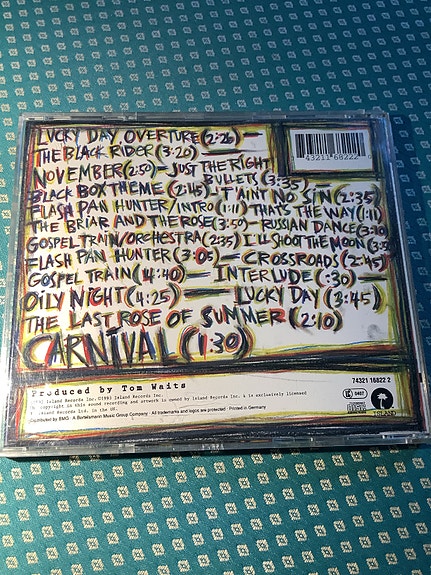 LUCKY DAY OVERTURE (2:26) —
THE BLACK RIDER (3:20) —
NOVEMBER (2:50) — JUST THE RIGHT
BULLETS (3:35) —
BLACK BOX THEME (2:45) IT AINT NO SIN (2:35)
FLASH PAN HUNTER/INTRO (1:11) THATS THE WAY (1:11)
THE BRIAR AND THE ROSE (3:50) — RUSSIAN DANCE (3:10)
GOSPEL TRAIN/ORCHESTRA (2:35) I'LL SHOOT THE MOON (3:50
FLASH PAN HUNTER (3:05) — CROSSROADS (2:45)
GOSPEL TRAIN (4:40) — INTERLUDE (:30) —
OILY NIGHT (4:25) — LUCKY DAY (3:45)
THE LAST ROSE OF SUMMER (2:10)
CARNIVAL (1:30)
43211 68222 0
Produced by Tom Waits
74321 16822 2
℗ 1993 Island Records Inc. ©1993 Island Records Inc.
copyright in this sound recording and artwork is owned by Island Records Inc. & is exclusively licensed
Island Records Ltd. in the UK.
Distributed by BMG - A Bertelsmann Music Group Company · All trademarks and logos are protected · Printed in Germany
LC 0407
disc
ISLAND